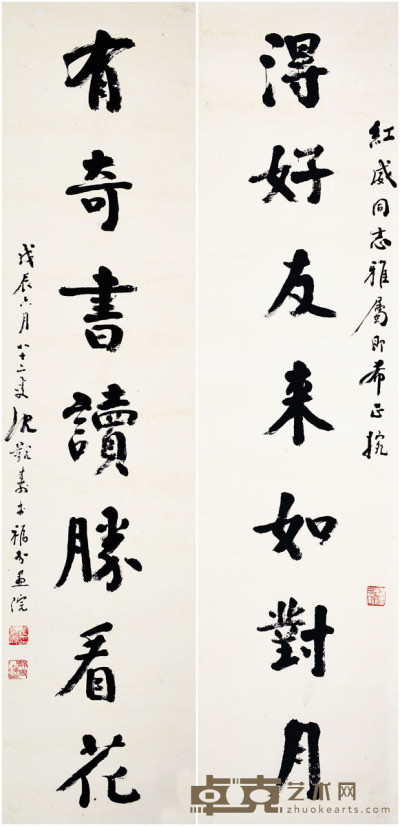 得好友来如對月
紅威同志雅屬即希正捥
有奇書讀勝看花
戊辰六月八十二叟沈觐壽于福州画院
卓克艺术网
zhuokearts.com